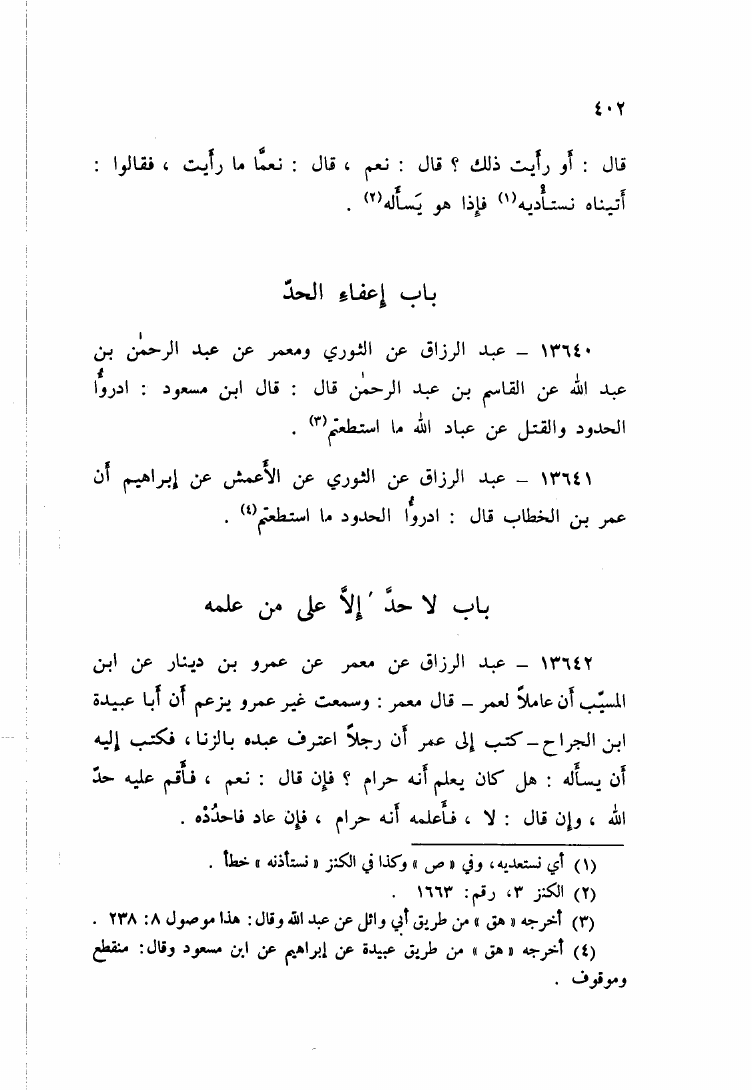 ٤٠٢
قال : أو رأيت ذلك ؟ قال : نعم ، قال : نعمَّا ما رأيت ، فقالوا :
أتيناه نستأْديه(١) فإذا هو يَسأَله(٢) .
باب إعفاء الحدّ
١٣٦٤٠ – عبد الرزاق عن الثوري ومعمر عن عبد الرحمٰن بن
عبد الله عن القاسم بن عبد الرحمٰن قال : قال ابن مسعود : ادروُّا
الحدود والقتل عن عباد الله ما استطعتم(٣) .
١٣٦٤١ – عبد الرزاق عن الثوري عن الأَعمش عن إبراهيم أن
عمر بن الخطاب قال : ادروُّا الحدود ما استطعتم(٤) .
باب لا حدَّ إلاَّ على من علمه
١٣٦٤٢ – عبد الرزاق عن معمر عن عمرو بن دينار عن ابن
المسيّب أن عاملاً لعمر – قال معمر : وسمعت غير عمرو يزعم أن أبا عبيدة
ابن الجراح – كتب إلى عمر أن رجلاً اعترف عبده بالزنا ، فكتب إليه
أن يسأَله : هل كان يعلم أنه حرام ؟ فإن قال : نعم ، فأَقم عليه حدّ
الله ، وإن قال : لا ، فأَعلمه أنه حرام ، فإن عاد فاحدُدْه .
(١) أي نستعديه، وفي « ص » وكذا في الكنز « نستأذنه » خطأ .
(٢) الكنز ٣، رقم: ١٦٦٣ .
(٣) أخرجه « هق » من طريق أبي وائل عن عبد الله وقال: هذا موصول ٨: ٢٣٨ .
(٤) أخرجه « هق » من طريق عبيدة عن إبراهيم عن ابن مسعود وقال: منقطع
وموقوف .